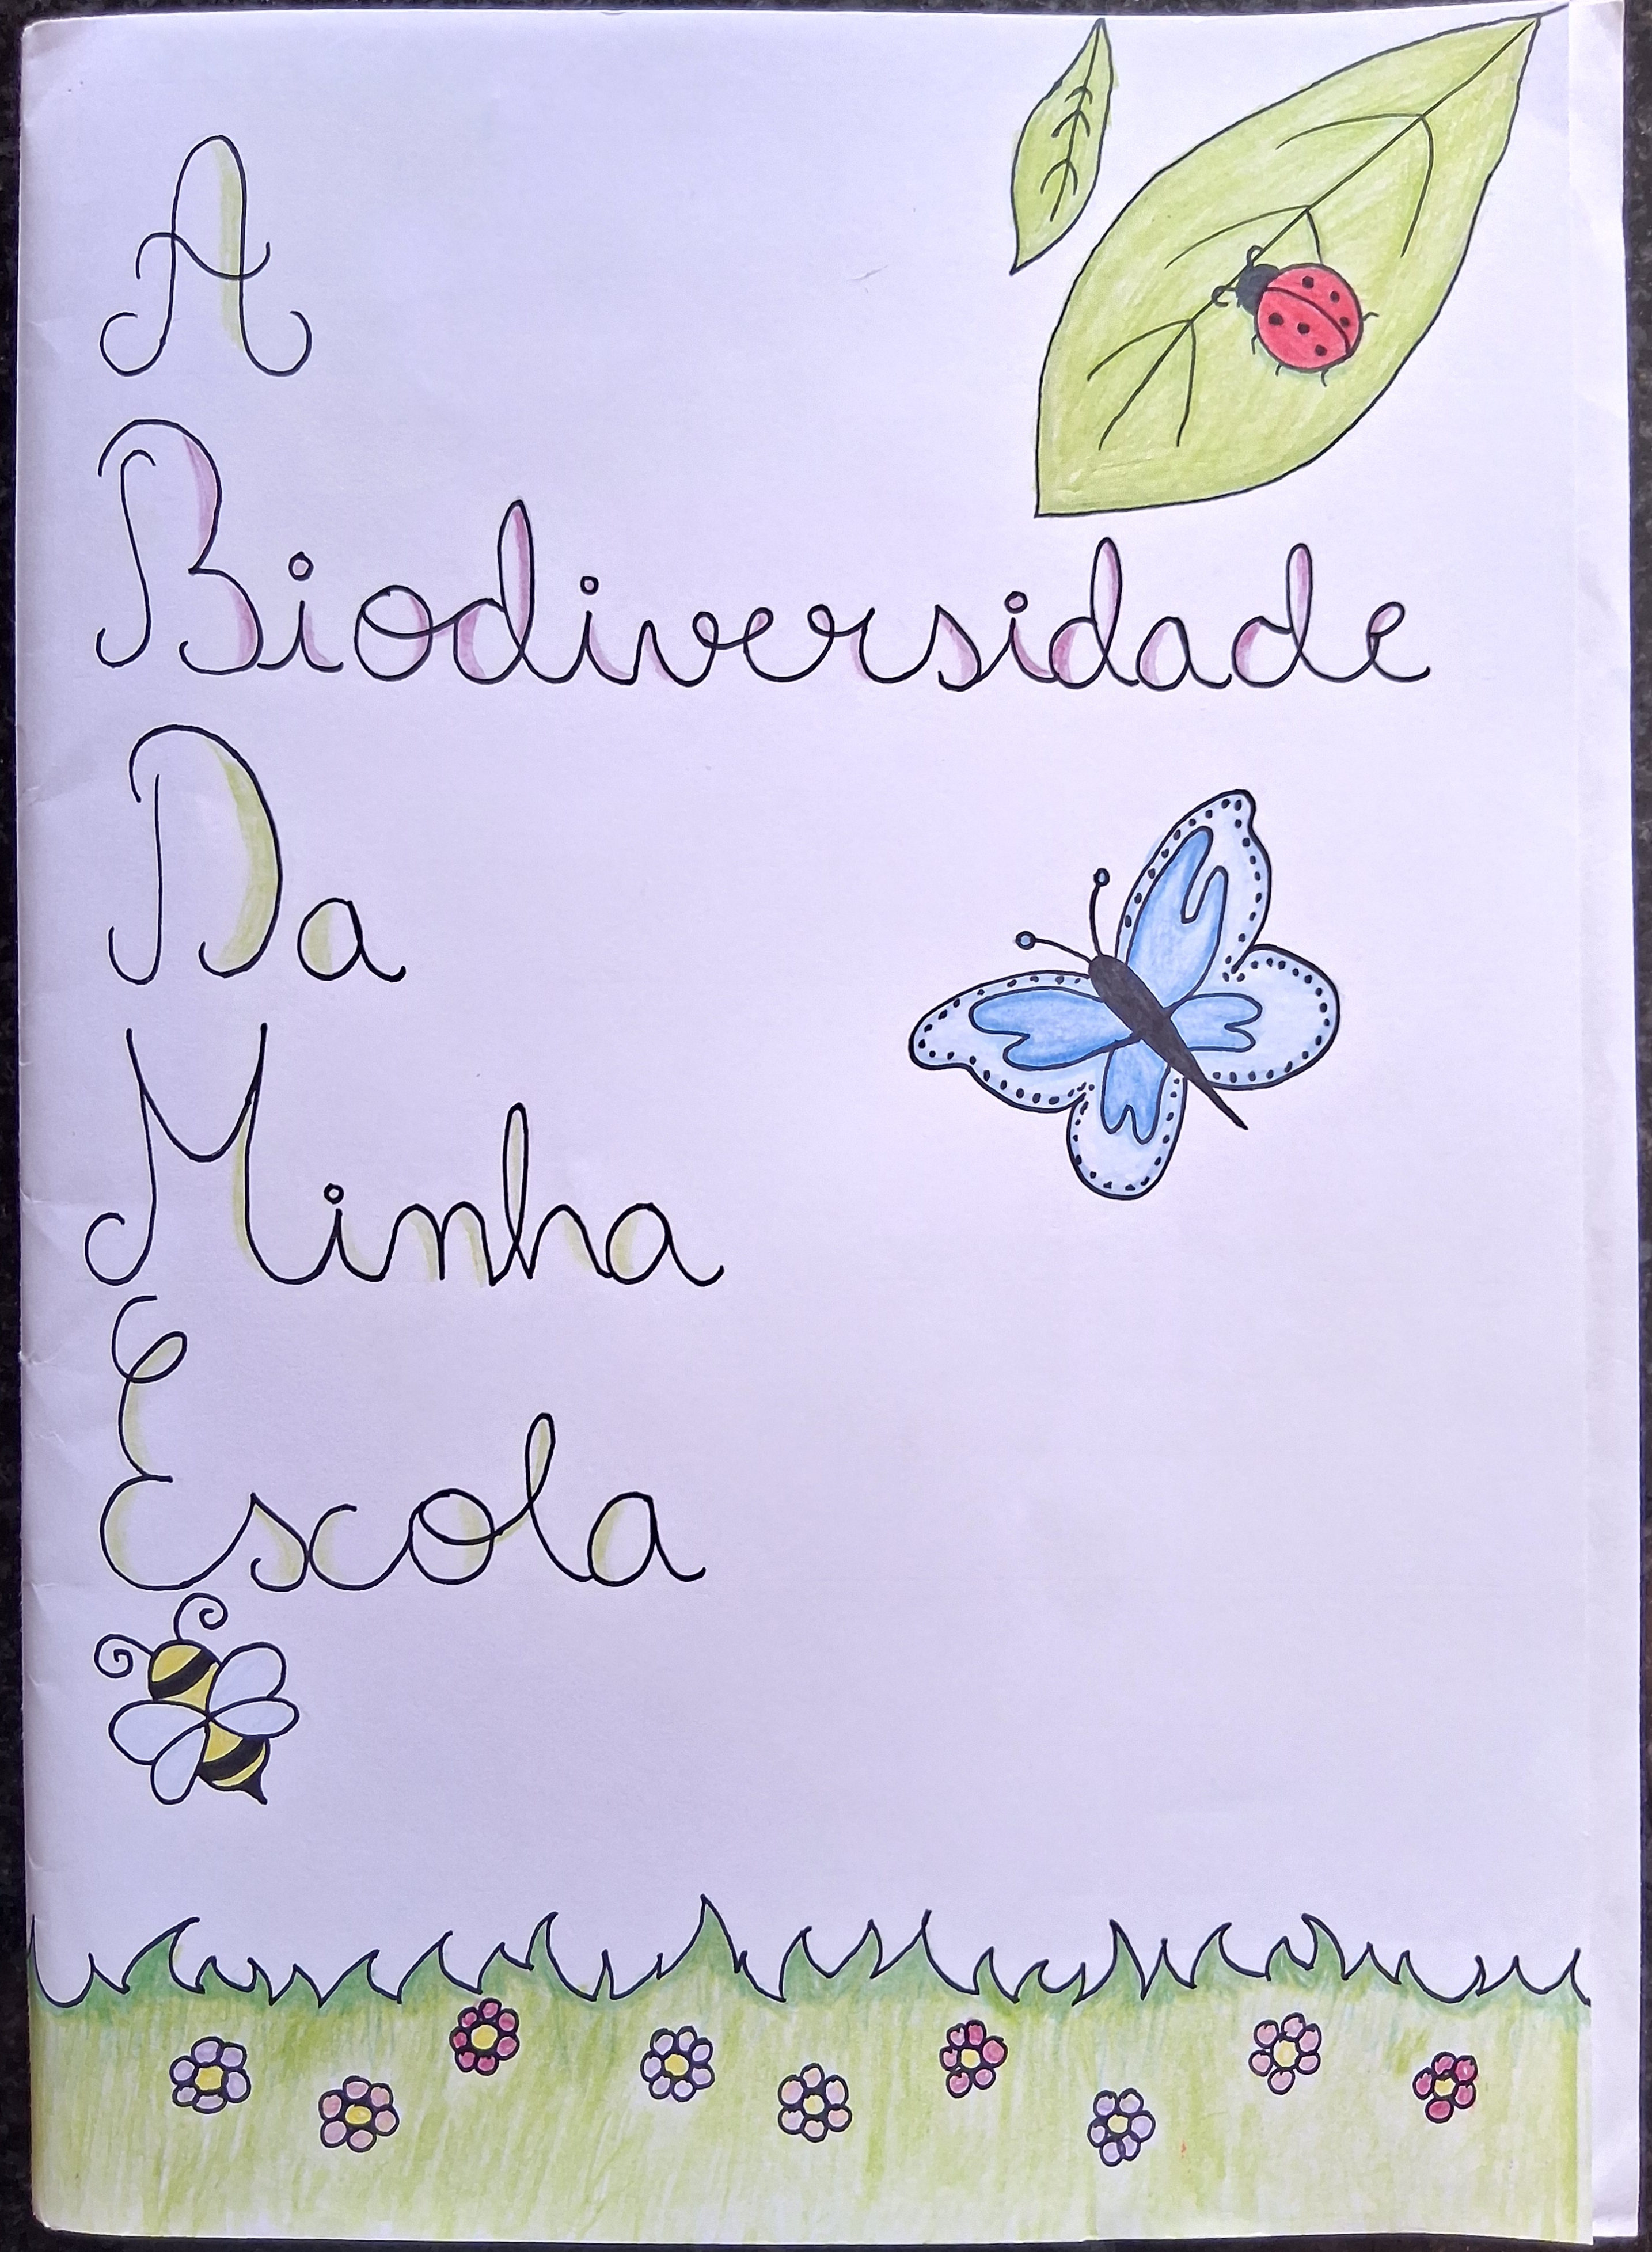 A
Biodiversidade
Da
Minha
Escola